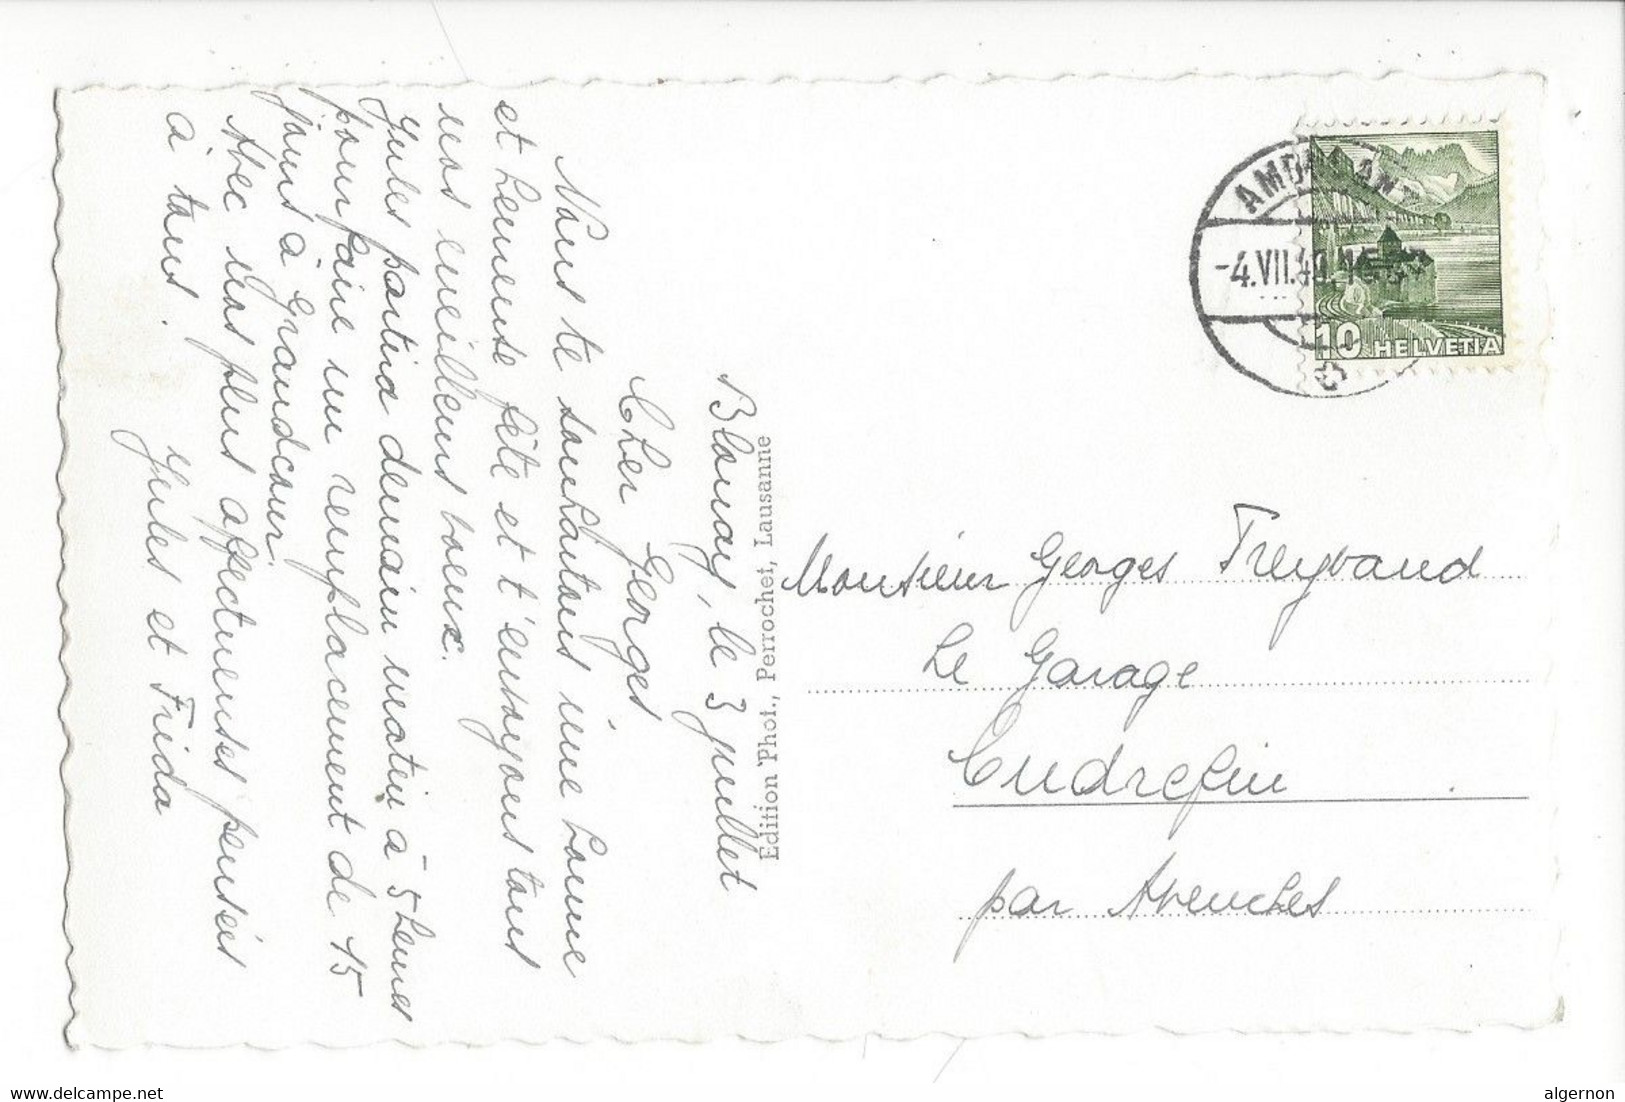 Blonay, le 3 juillet
Cher Georges
Nous te souhaitons une bonne
et heureuse fête et t'envoyons tous
nos meilleurs voeux.
Jules partira demain matin à 5 heures
pour faire un remplacement de 15
jours à Grandcour.
Avec nos plus affectueuses pensées
à tous.
Jules et Frida
Edition Phot., Perrochet, Lausanne
-4.VII.
10 HELVETIA
Monsieur Georges Treyvaud
Le Garage
Cudrefin
par Avenches
www.delcampe.net
algernon